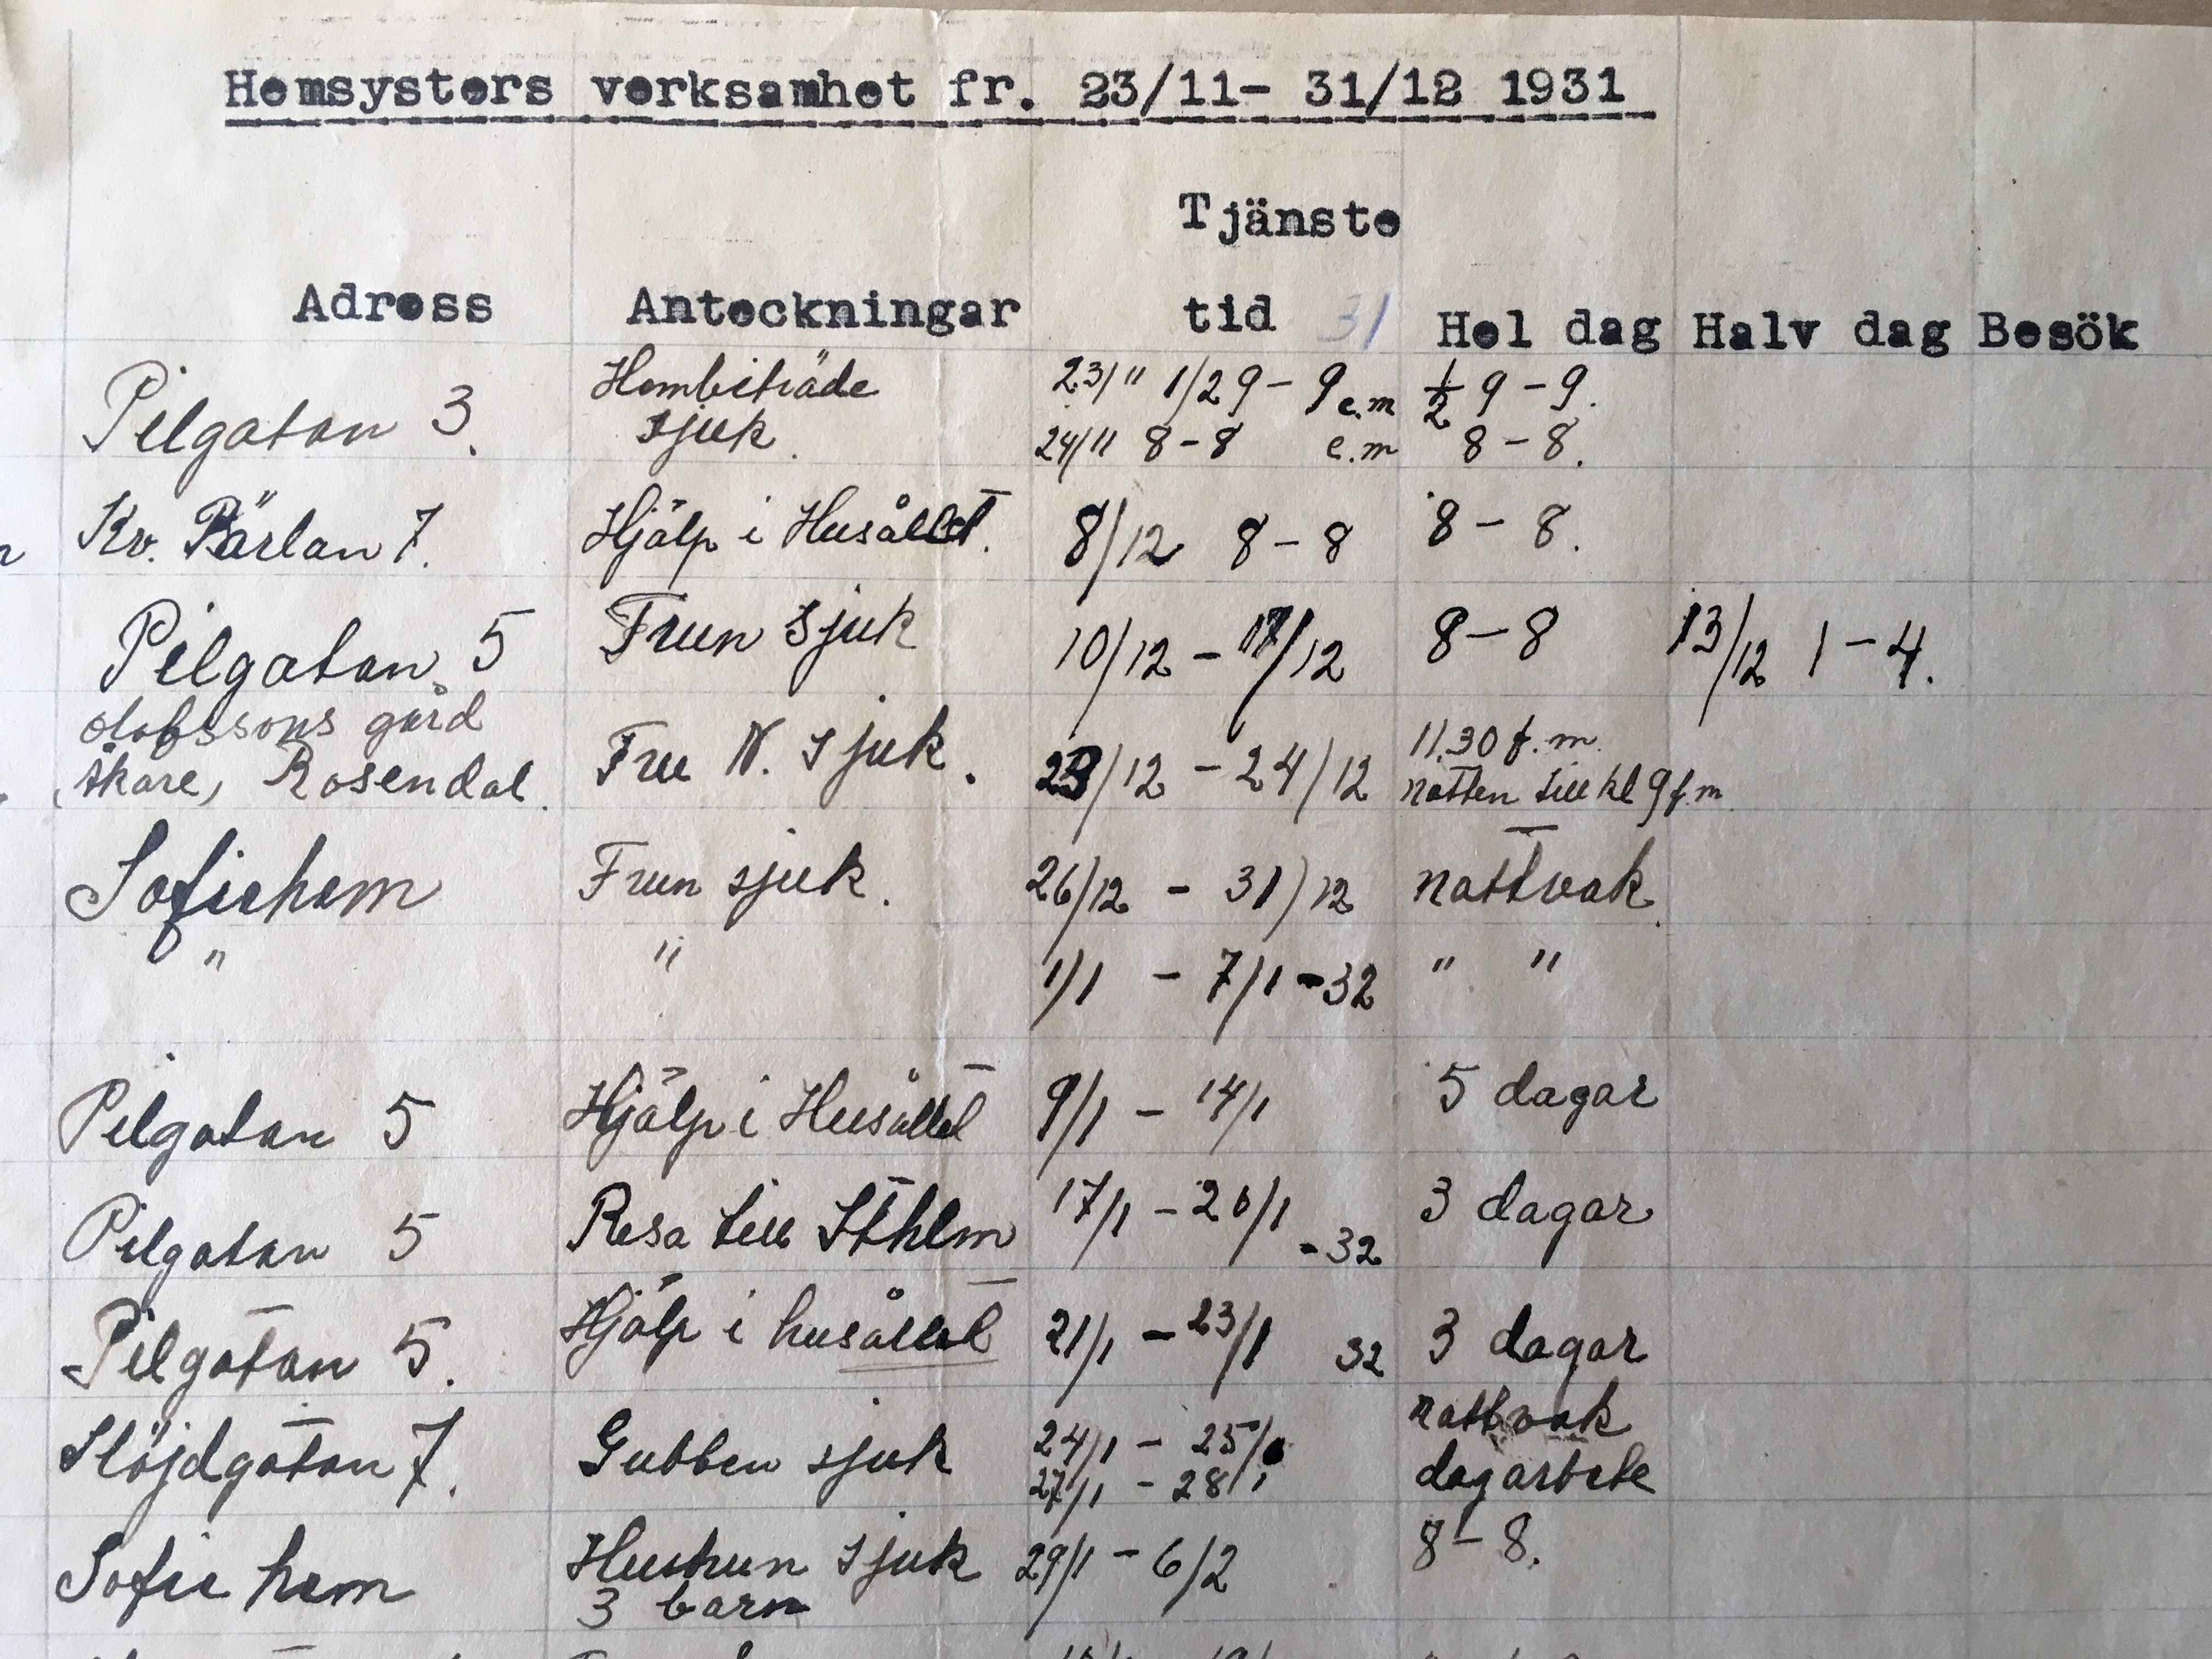 Hemsysters verksamhet fr. 23/11- 31/12 1931
Tjänste
Adress Anteckningar tid 31 Hel dag Halv dag Besök
Pilgatan 3. Hembiträde sjuk. 23/11 1/2 9 - 9 e.m ½ 9 - 9.
24/11 8 - 8 e.m 8 - 8.
Kv. Pärlan 7. Hjälp i Husållet. 8/12 8 - 8 8 - 8.
Pilgatan 5 Frun Sjuk 10/12 - 17/12 8 - 8 13/12 1 - 4.
olofssons gård
Skare, Rosendal. Fru N. Sjuk. 23/12 - 24/12 11.30 f.m.
natten till kl 9 f.m
Sofiehem Frun sjuk. 26/12 - 31/12 nattvak.
" " 1/1 - 7/1 -32 " "
Pilgatan 5 Hjälp i Husållet 9/1 - 14/1 5 dagar
Pilgatan 5 Resa till Sthlm 17/1 - 20/1 -32 3 dagar
Pilgatan 5. Hjälp i husållet 21/1 - 23/1 32 3 dagar
Slöjdgatan 7. Gubben sjuk 24/1 - 25/1 nattvak
27/1 - 28/1 dagarbete
Sofiehem Hustrun Sjuk 29/1 - 6/2 8 - 8.
3 barn